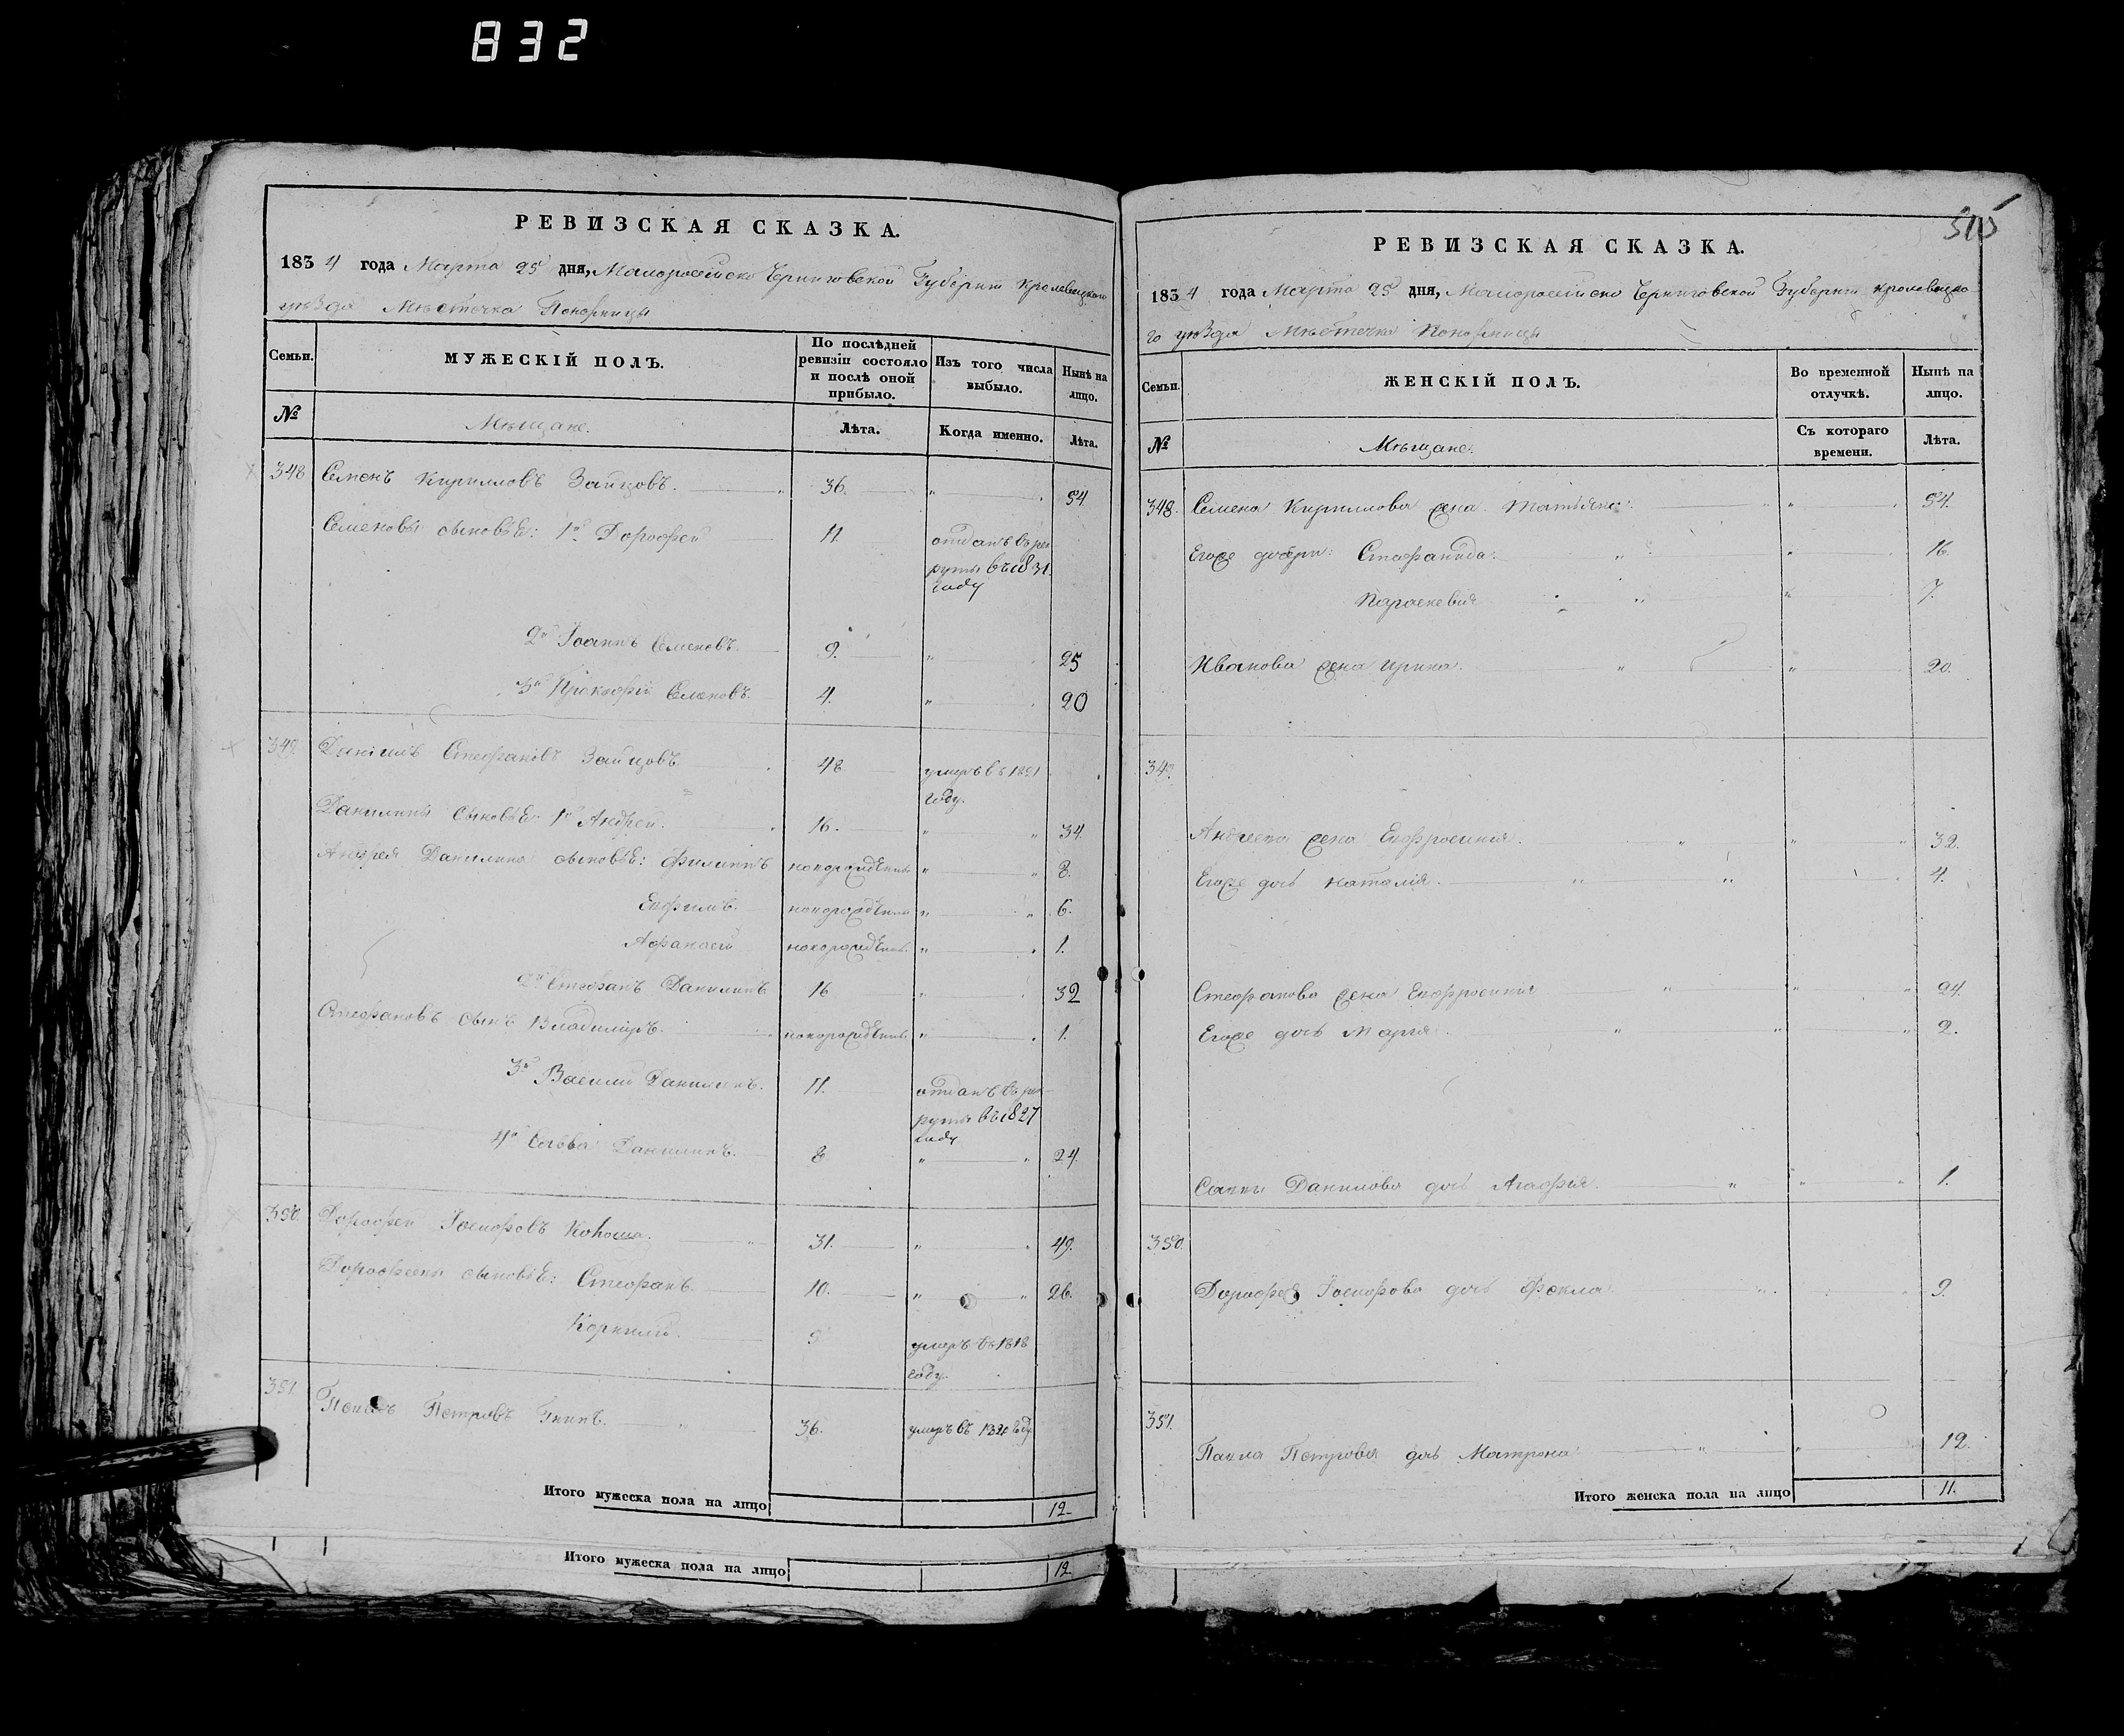 832
РЕВИЗСКАЯ СКАЗКА.
1834 года Марта 25 дня, Малоросійско Черниговской Губерніи Кролевецкого
уѣзда Мѣстечка Понорницы
Семьи.
МУЖЕСКІЙ ПОЛЪ.
По послѣдней ревизіи состояло и послѣ оной прибыло.
Изъ того числа выбыло.
Нынѣ на лицо.
№
Мѣщане.
Лѣта.
Когда именно.
Лѣта.
348 Семенъ Кириловъ Зайцовъ. 36. " 54
Семеновы сыновьѣ: 1й Дорофей 11. отданъ въ рек
руты въ 1831
году
2й Іоаннъ Семеновъ. 9. " 25
3й Прокофій Семеновъ. 4. " 20
349 Даніилъ Стефановъ Зайцовъ 48 умеръ въ 1821
году.
Данилины сыновьѣ 1й Андрей. 16. " " 34
Андрея Данилина сыновьѣ: Филиппъ новорожденъ " " 8.
Ефимъ. новорожденъ " " 6.
Афанасій новорожденъ. " " 1.
2й Стефанъ Данилинъ 16 " 32
Стефановъ сынъ Владимиръ. новорожденъ. " 1.
3й Василий Данилинъ. 11. отданъ въ рек
руты въ 1827
году
4й Данилинъ. 8 " " 24.
350. Дорофей Іосифовъ 31. " 49.
Дорофеевы сыновьѣ: Стефанъ. 10. " " 26.
Корнилій. умеръ въ 1818
году.
351. Петровъ 36. умеръ въ году
Итого мужеска пола на лицо 12.
Итого мужеска пола на лицо 12.
515
РЕВИЗСКАЯ СКАЗКА.
1834 года Марта 25 дня, Малоросійско Черниговской Губерніи Кролевецко
го уѣзда Мѣстечка Понорницы
Семьи.
ЖЕНСКІЙ ПОЛЪ.
Во временной отлучкѣ.
Нынѣ на лицо.
№
Мѣщане.
Съ котораго времени.
Лѣта.
348. Семена Кирилова жена Татьяна. " 54.
Егоже дочери: Стефанида. " " 16.
Параскевия " " 7.
Иванова жена Ирина. " " 20.
349.
Андреева жена Евфросиния. " " " 32.
Егоже дочь Наталія. " " 4.
Стефанова жена Евфросиния " " " 24.
Егоже дочь Марія. " " " 2.
Саввы Данилова дочь Агафія. " " 1.
350.
Дорофея Іосифова дочь Фекла " 9.
351.
Павла Петрова дочь Матрона " " 12.
Итого женска пола на лицо 11.